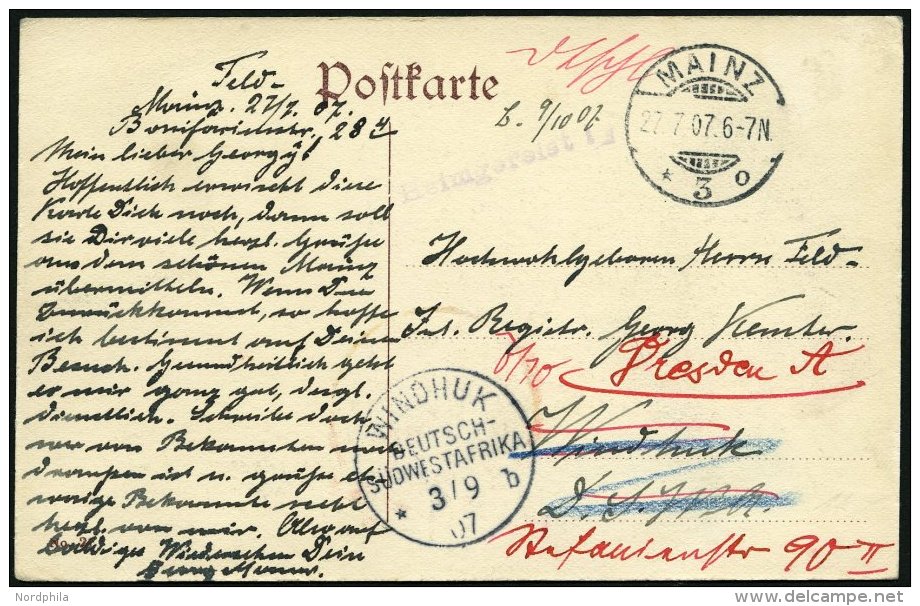 Postkarte
MAINZ
27.7.07.6-7N.
* 3 o
Feld-
Mainz. 27/7. 07.
Bonifaziusstr. 28
Mein lieber Georgy!
Hoffentlich erwischt diese
Karte Dich noch, dann soll
sie Dir viele herzl. Grüße
aus dem schönen Mainz
übermitteln. Wenn Du
zurückkommst, so hoffe
ich bestimmt auf Deinen
Besuch. Gesundheitlich geht
es mir ganz gut, desgl.
dienstlich. Schreibe doch
wer von Bekannten noch
draußen ist u. grüße
einige Bekannte
herzl. von mir. Also auf
baldiges Wiedersehen Dein
Georg
9/10 07
Heimgereist
Hochwohlgeboren Herrn Feld-
Int. Registr. Georg
7/10 Dresden A
Windhuk
D. S. W. A.
Stefanienstr 90 II
WINDHUK
DEUTSCH-
SÜDWESTAFRIKA
* 3/9 b
07
Nordphila
delcampe.net